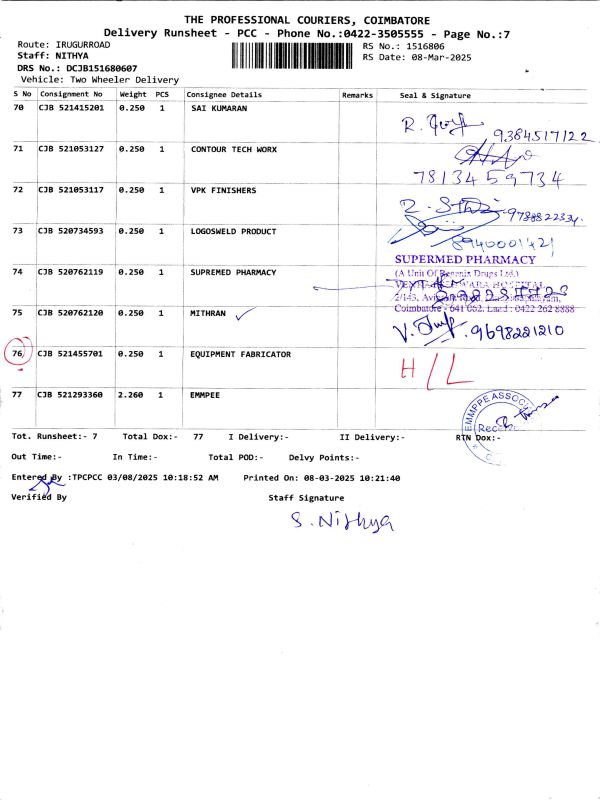 THE PROFESSIONAL COURIERS, COIMBATORE
Delivery Runsheet - PCC - Phone No.:0422-3505555 - Page No.:7
Route: IRUGURROAD RS No.: 1516806
Staff: NITHYA RS Date: 08-Mar-2025
DRS No.: DCJB151680607
Vehicle: Two Wheeler Delivery
S No Consignment No Weight PCS Consignee Details Remarks Seal & Signature
70 CJB 521415201 0.250 1 SAI KUMARAN
9384517122
71 CJB 521053127 0.250 1 CONTOUR TECH WORX
7813459734
72 CJB 521053117 0.250 1 VPK FINISHERS
73 CJB 520734593 0.250 1 LOGOSWELD PRODUCT
8940001421
SUPERMED PHARMACY
74 CJB 520762119 0.250 1 SUPREMED PHARMACY
(A Unit Of Revenix Drugs Ltd.)
Coimbatore - 641 062. 0422 262 8888
75 CJB 520762120 0.250 1 MITHRAN
9698221210
76 CJB 521455701 0.250 1 EQUIPMENT FABRICATOR
H/L
77 CJB 521293360 2.260 1 EMMPEE
EMMPPE ASSOCI
Tot. Runsheet:- 7 Total Dox:- 77 I Delivery:- II Delivery:- RTN Dox:-
Out Time:- In Time:- Total POD:- Delvy Points:-
Entered By :TPCPCC 03/08/2025 10:18:52 AM Printed On: 08-03-2025 10:21:40
Verified By Staff Signature
S. Nithya